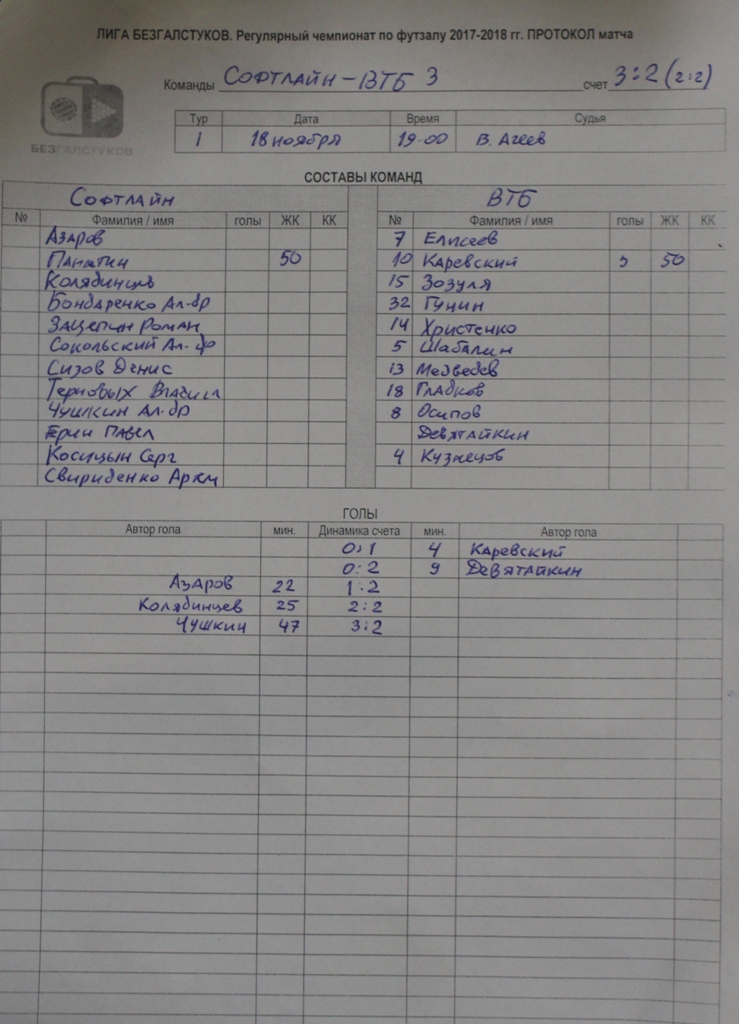 ЛИГА БЕЗГАЛСТУКОВ. Регулярный чемпионат по футзалу 2017-2018 гг. ПРОТОКОЛ матча
Команды Софтлайн - ВТБ 3 счет 3:2 (2:2)
БЕЗГАЛСТУКОВ
Тур Дата Время Судья
1 18 ноября 19-00 В. Агеев
СОСТАВЫ КОМАНД
Софтлайн ВТБ
№ Фамилия / имя голы ЖК КК № Фамилия / имя голы ЖК КК
Азаров 7 Елисеев
50 10 Каревский 50
Колядинцев 15 Зозуля
Бондаренко Ал-др 32 Гунин
Зацепин Роман 14 Христенко
Сокольский Ал-др 5 Шабалин
Сизов Денис 13 Медведев
Терновых 18 Гладков
Чушкин Ал-др 8 Осипов
Ерин Павел Девятайкин
Косицын Серг 4 Кузнецов
Свириденко Арт
ГОЛЫ
Автор гола мин. Динамика счета мин. Автор гола
0:1 4 Каревский
0:2 9 Девятайкин
Азаров 22 1:2
Колядинцев 25 2:2
Чушкин 47 3:2